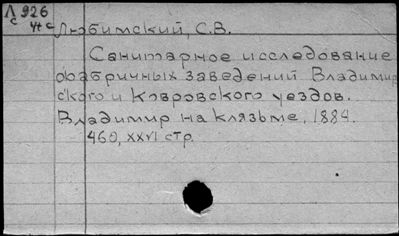 Л 926
с
чг с
Любимский, С.В.
Санитарное исследование
фабричных заведений Владимир
ского и Ковровского уездов.
Владимир на Клязьме, 1884.
460, XXVI стр.